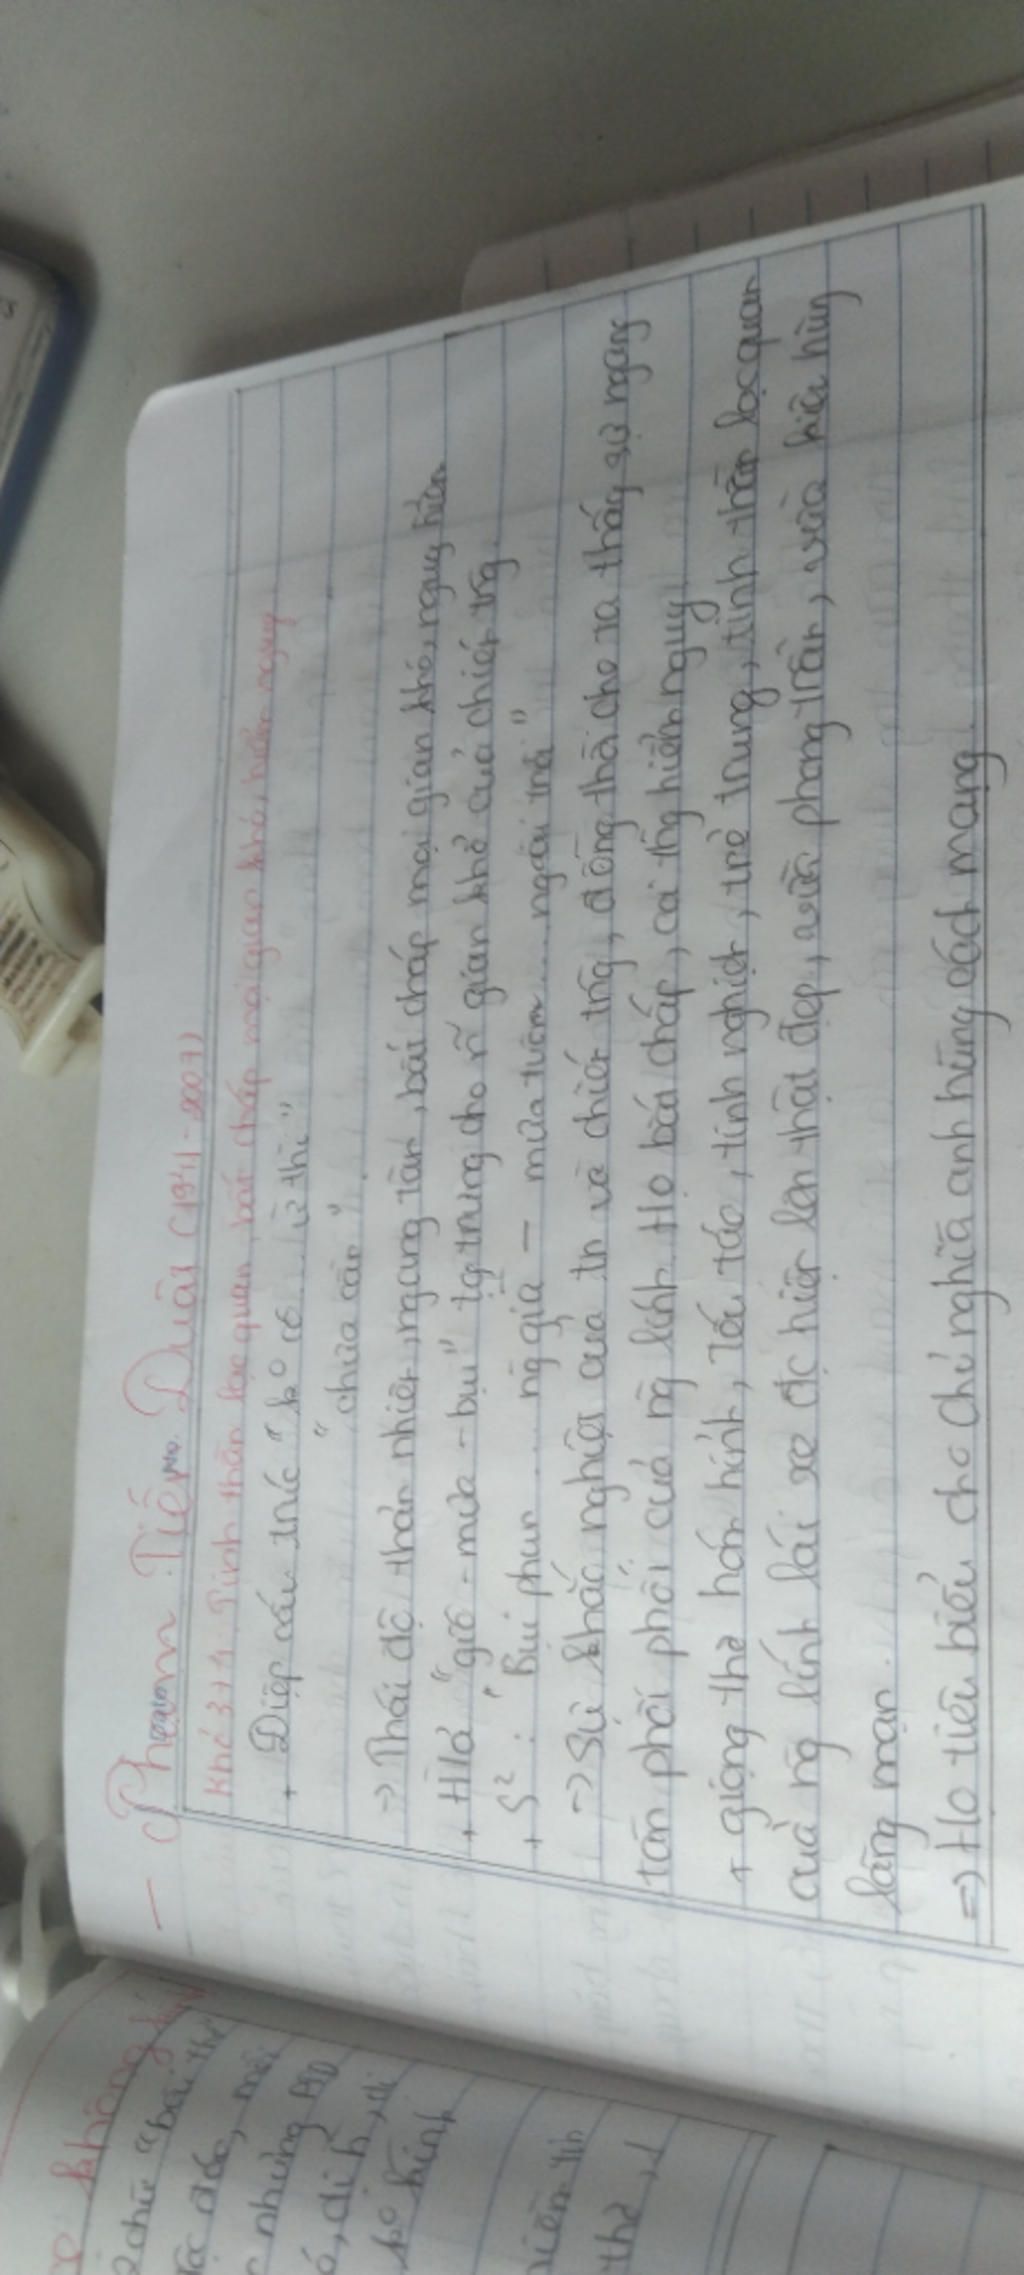 - Phạm Tiến Duật (1941-2007)
Khổ 3+4: Tinh thần lạc quan, bất chấp mọi gian khó, hiểm nguy
+ Điệp cấu trúc " ko có... ừ thì"
" chưa cần "
-> Thái độ thản nhiên, ngang tàn, bất chấp mọi gian khó, nguy hiểm
+ H/ả "gió - mưa - bụi" tg trưng cho ~ gian khổ của chiến trg
+ S² : " Bụi phun... ng già - mưa tuôn... ngoài trời "
-> Sự khắc nghiệt của tn và chiến trg, đồng thời cho ta thấy sự ngang
tàn phơi phới của ng lính. Họ bất chấp, coi thg hiểm nguy
+ giọng thơ hóm hỉnh, tếu táo, tinh nghịch, trẻ trung, tinh thần lạc quan
của ng lính lái xe đc hiện lên thật đẹp, vừa phong trần, vừa kiêu hùng
lãng mạn.
=> Họ tiêu biểu cho chủ nghĩa anh hùng cách mạng
không kính
chữ "bài thơ
những